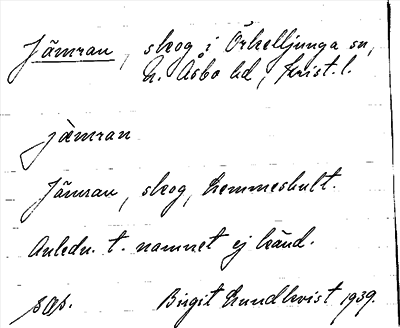 Jämran, skog i Örkelljunga sn,
N. Åsbo hd, Krist. l.
jämran
Jämran, skog, Hemmeshult.
Anledn. t. namnet ej känd.
sap.
Birgit Lundkvist 1939.